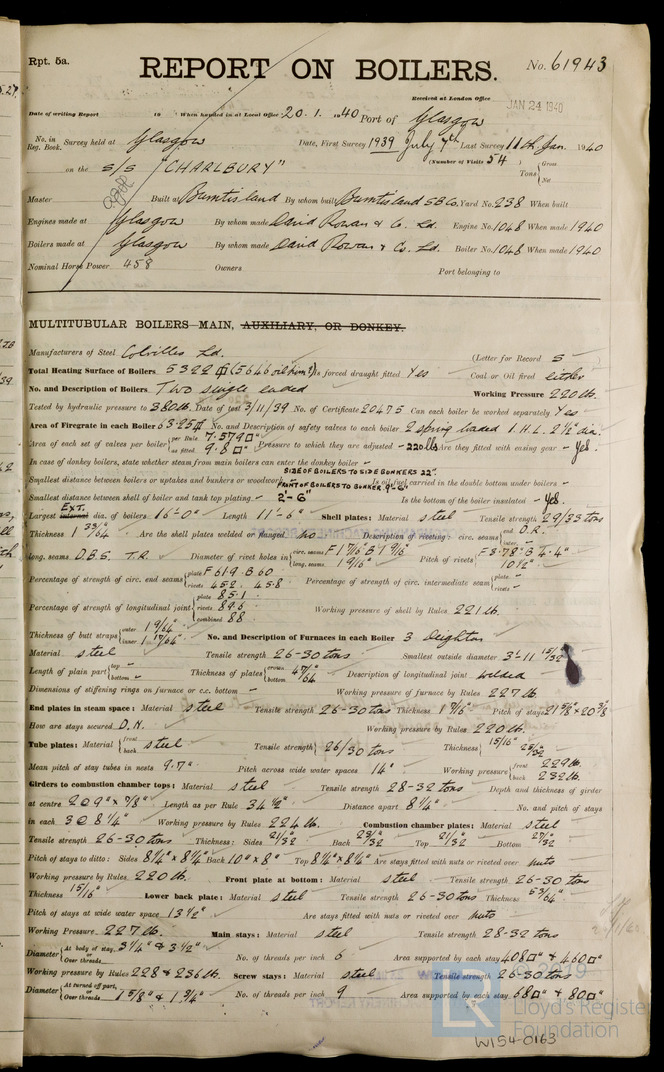 Rpt. 5a.
REPORT ON BOILERS.
No. 61943
Received at London Office
JAN 24 1940
Date of writing Report 19 When handed in at Local Office 20.1.1940 Port of Glasgow
No. in Reg. Book. Survey held at Glasgow Date, First Survey 1939 July 7th Last Survey 11th Jan. 1940
(Number of Visits 54)
on the S/S "CHARLBURY" Tons { Gross Net
Master Built at Burntisland By whom built Burntisland S.B.Co. Yard No. 238 When built
Engines made at Glasgow By whom made David Rowan & Co. Ld. Engine No. 1048 When made 1940
Boilers made at Glasgow By whom made David Rowan & Co. Ld. Boiler No. 1048 When made 1940
Nominal Horse Power 458 Owners Port belonging to
MULTITUBULAR BOILERS—MAIN, AUXILIARY, OR DONKEY.
Manufacturers of Steel Colvilles Ld. (Letter for Record S
Total Heating Surface of Boilers 5322 Is forced draught fitted Yes Coal or Oil fired either
No. and Description of Boilers Two single ended Working Pressure 220 lb.
Tested by hydraulic pressure to 380 lb. Date of test 3/11/39 No. of Certificate 20475 Can each boiler be worked separately Yes
Area of Firegrate in each Boiler 63.25 No. and Description of safety valves to each boiler 2 spring loaded I.H.L. 2½" dia.
Area of each set of valves per boiler { per Rule 7.579□" as fitted 9.8□" Pressure to which they are adjusted - 220 lbs Are they fitted with easing gear - Yes.
In case of donkey boilers, state whether steam from main boilers can enter the donkey boiler -
SIDE OF BOILERS TO SIDE BUNKERS 22".
Smallest distance between boilers or uptakes and bunkers or woodwork FRONT OF BOILERS TO BUNKER 9'-6" Is oil fuel carried in the double bottom under boilers -
Smallest distance between shell of boiler and tank top plating - 2'-6" Is the bottom of the boiler insulated - Yes.
Largest internal EXT. dia. of boilers 16'-0" Length 11'-6" Shell plates: Material steel Tensile strength 29/33 tons
Thickness 1 33/64" Are the shell plates welded or flanged no Description of riveting: circ. seams { end D.R. inter. -
long. seams D.B.S. T.R. Diameter of rivet holes in { circ. seams F 1 7/16" B 1 9/16" long. seams 1 9/16" Pitch of rivets { F 3.78" B 4.4" 10½"
Percentage of strength of circ. end seams { plate F 61.9 B 60 rivets 45.2 45.8 Percentage of strength of circ. intermediate seam { plate - rivets -
Percentage of strength of longitudinal joint { plate 85.1 rivets 89.6 combined 88 Working pressure of shell by Rules 221 lb.
Thickness of butt straps { outer 1 9/64" inner 1 17/64" No. and Description of Furnaces in each Boiler 3 Deighton
Material steel Tensile strength 26-30 tons Smallest outside diameter 3'-11 15/32"
Length of plain part { top - bottom - Thickness of plates { crown bottom 47/64" Description of longitudinal joint welded
Dimensions of stiffening rings on furnace or c.c. bottom - Working pressure of furnace by Rules 227 lb
End plates in steam space: Material steel Tensile strength 26-30 tons Thickness 1 9/16" Pitch of stays 21 5/8" × 20 3/8
How are stays secured D.N. Working pressure by Rules 220 lb.
Tube plates: Material { front back steel Tensile strength { 26/30 tons Thickness { 15/16" 25/32
Mean pitch of stay tubes in nests 9.7" Pitch across wide water spaces 14" Working pressure { front 229 lb. back 232 lb.
Girders to combustion chamber tops: Material steel Tensile strength 28-32 tons Depth and thickness of girder
at centre 2@9" × 7/8" Length as per Rule 34½" Distance apart 8¼" No. and pitch of stays
in each 3@8¼" Working pressure by Rules 224 lb. Combustion chamber plates: Material steel
Tensile strength 26-30 tons Thickness: Sides 21/32 Back 23/32 Top 21/32 Bottom 27/32
Pitch of stays to ditto: Sides 8¼" × 8¼" Back 10" × 8" Top 8¼" × 8¼" Are stays fitted with nuts or riveted over nuts
Working pressure by Rules 220 lb. Front plate at bottom: Material steel Tensile strength 26-30 tons
Thickness 15/16" Lower back plate: Material steel Tensile strength 26-30 tons Thickness 53/64"
Pitch of stays at wide water space 13½" Are stays fitted with nuts or riveted over nuts
Working Pressure 227 lb. Main stays: Material steel Tensile strength 28-32 tons
Diameter { At body of stay, or Over threads 3¼" & 3½" No. of threads per inch 6 Area supported by each stay 408□" & 460□"
Working pressure by Rules 228 & 236 lb. Screw stays: Material steel Tensile strength 26-30 tons
Diameter { At turned off part, or Over threads 1 5/8" & 1¾" No. of threads per inch 9 Area supported by each stay 68□" & 80□"
LR Lloyd's Register Foundation
W154-0163